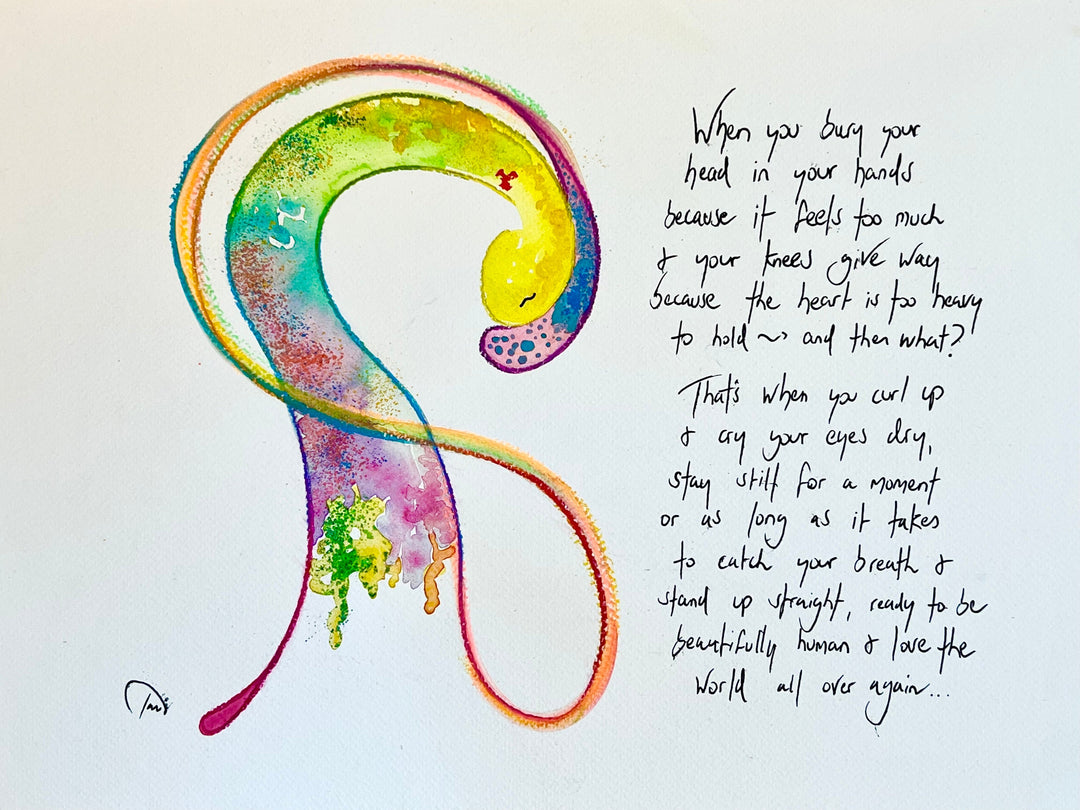 When you bury your
head in your hands
because it feels too much
& your knees give way
because the heart is too heavy
to hold ~> and then what?
That's when you curl up
& cry your eyes dry,
stay still for a moment
or as long as it takes
to catch your breath &
stand up straight, ready to be
beautifully human & love the
world all over again...